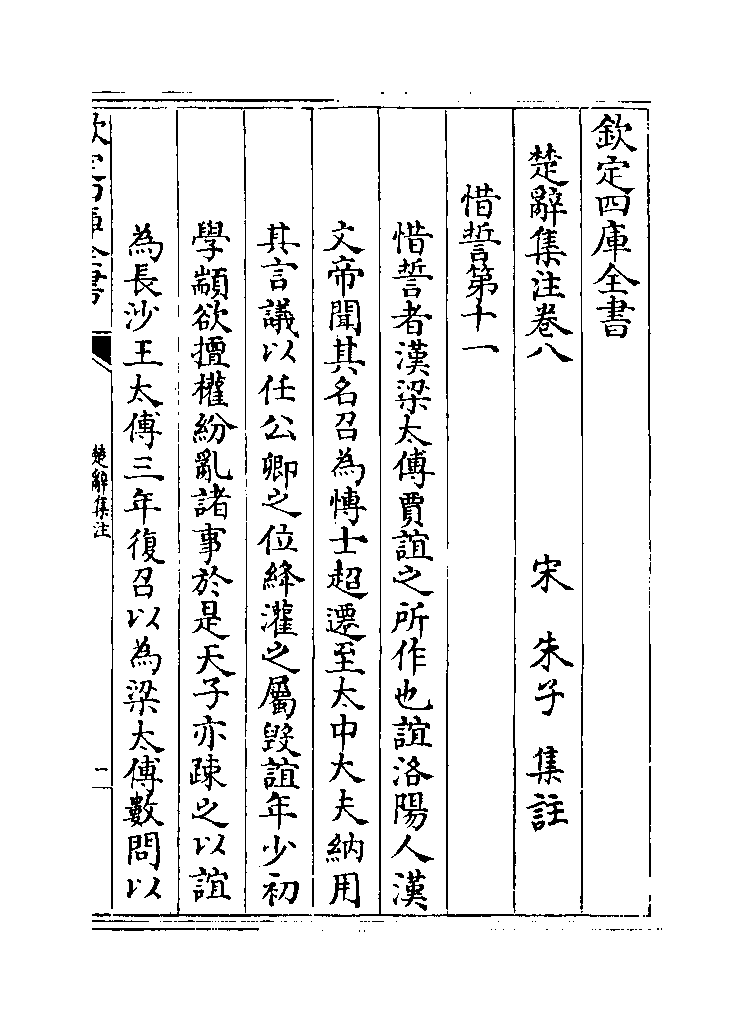 欽定四庫全書
楚辭集注卷八
宋　朱子　集註
惜誓第十一
惜誓者漢梁太傅賈誼之所作也誼洛陽人漢
文帝聞其名召為博士超遷至太中大夫納用
其言議以任公卿之位絳灌之屬毀誼年少初
學顓欲擅權紛亂諸事於是天子亦疎之以誼
為長沙王太傅三年復召以為梁太傅數問以
欽定四庫全書
楚辭集注
一